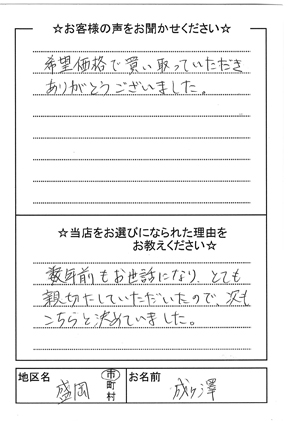 ☆お客様の声をお聞かせください☆
希望価格で買い取っていただき
ありがとうございました。
☆当店をお選びになられた理由を
お教えください☆
数年前もお世話になり、とても
親切にしていただいたので、次も
こちらと決めていました。
地区名 盛岡 市 町 村 お名前 成ヶ澤